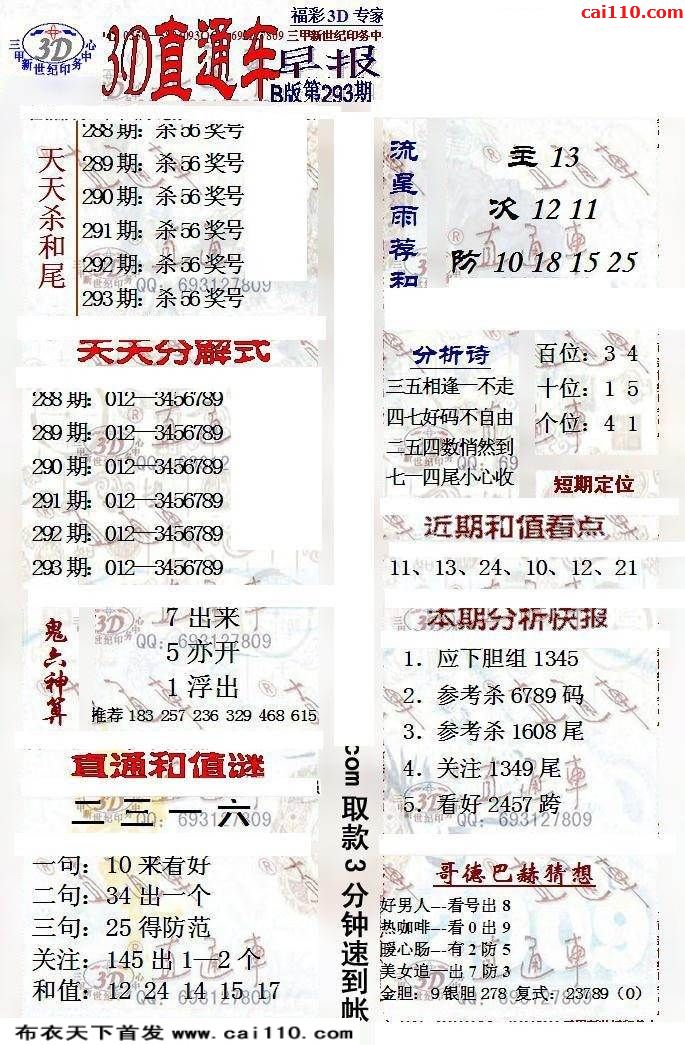 cai110.com
福彩3D专家
三甲新世纪印务中心
3D
3D直通车
早报
B版第293期
天天杀和尾
288期：杀56奖号
289期：杀56奖号
290期：杀56奖号
291期：杀56奖号
292期：杀56奖号
QQ：693127809
293期：杀56奖号
流星雨荐和
主 13
次 12 11
防 10 18 15 25
天天分解式
288期：012—3456789
289期：012—3456789
290期：012—3456789
291期：012—3456789
292期：012—3456789
293期：012—3456789
分析诗
三五相逢一不走
四七好码不自由
二五四数悄然到
七一四尾小心收
百位：3 4
十位：1 5
个位：4 1
短期定位
近期和值看点
11、13、24、10、12、21
鬼六神算
7 出来
QQ：693127809
5 亦开
1 浮出
推荐 183 257 236 329 468 615
本期分析快报
1．应下胆组1345
2．参考杀6789码
3．参考杀1608尾
4．关注1349尾
5．看好2457跨
QQ：693127809
直通和值谜
二三一六
693127809
一句：10来看好
二句：34出一个
三句：25得防范
关注：145出1—2个
和值：12 24 14 15 17
com 取款3分钟速到帐
哥德巴赫猜想
好男人---看号出8
热咖啡---看0出9
暖心肠---有2防5
美女追---出7防3
金胆：9银胆278 复式：23789（0）
布衣天下首发 www.cai110.com